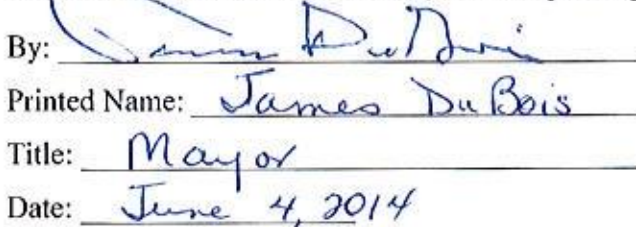 By: James DuBois
Printed Name: James DuBois
Title: Mayor
Date: June 4, 2014